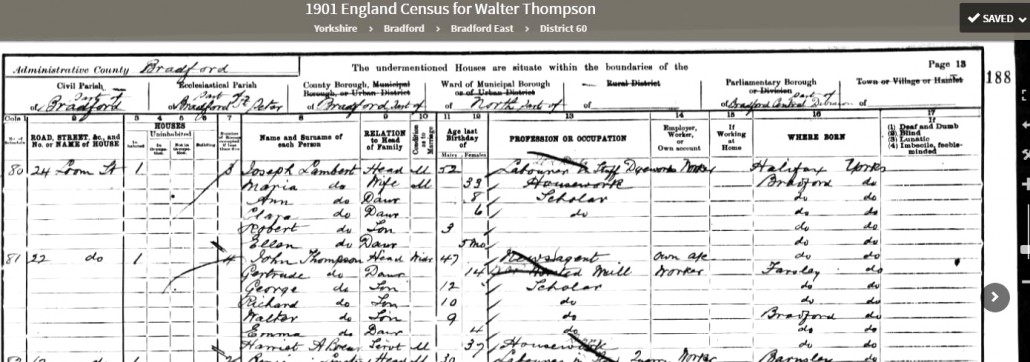 1901 England Census for Walter Thompson
Yorkshire > Bradford > Bradford East > District 60
SAVED
Administrative County Bradford
The undermentioned Houses are situate within the boundaries of the
Page 13
188
Civil Parish
Ecclesiastical Parish
County Borough, Municipal Borough, or Urban District
Ward of Municipal Borough or Urban District
Rural District
Parliamentary Borough or Division
Town or Village or Hamlet
of Bradford
of Bradford St Peter
of Bradford part of
of North part of
of
of Bradford Central Division
of
Cols 1 2 3 4 5 6 7 8 9 10 11 12 13 14 15 16 17
No. of Schedule
ROAD, STREET, &c., and No. or NAME of HOUSE
HOUSES
Uninhabited
Building
Name and Surname of each Person
RELATION to Head of Family
Condition as to Marriage
Age last Birthday of
Males Females
PROFESSION OR OCCUPATION
Employer, Worker, or Own account
If Working at Home
WHERE BORN
(1) Deaf and Dumb
(2) Blind
(3) Lunatic
(4) Imbecile, feeble-minded
80 24 Loom St 1 Joseph Lambert Head M 52 Labourer in Stuff Dyeworks Worker Halifax Yorks
Maria do Wife M 33 Housework Bradford do
Ann do Daur 8 Scholar do do
Clara do Daur 6 do do do
Robert do Son 3 do do
Ellen do Daur 5 Mo do do
81 22 do 1 John Thompson Head 47 Newsagent Own a/c do do
Gertrude do Daur 14 Worsted Mill Worker Farsley do
George do Son 12 Scholar do do
Richard do Son 10 do do do
Walter do Son 9 do Bradford do
Emma do Daur 4 do do do
Harriet A Servt M 37 Housework do do
Head M 30 Labourer in Worker Barnsley do